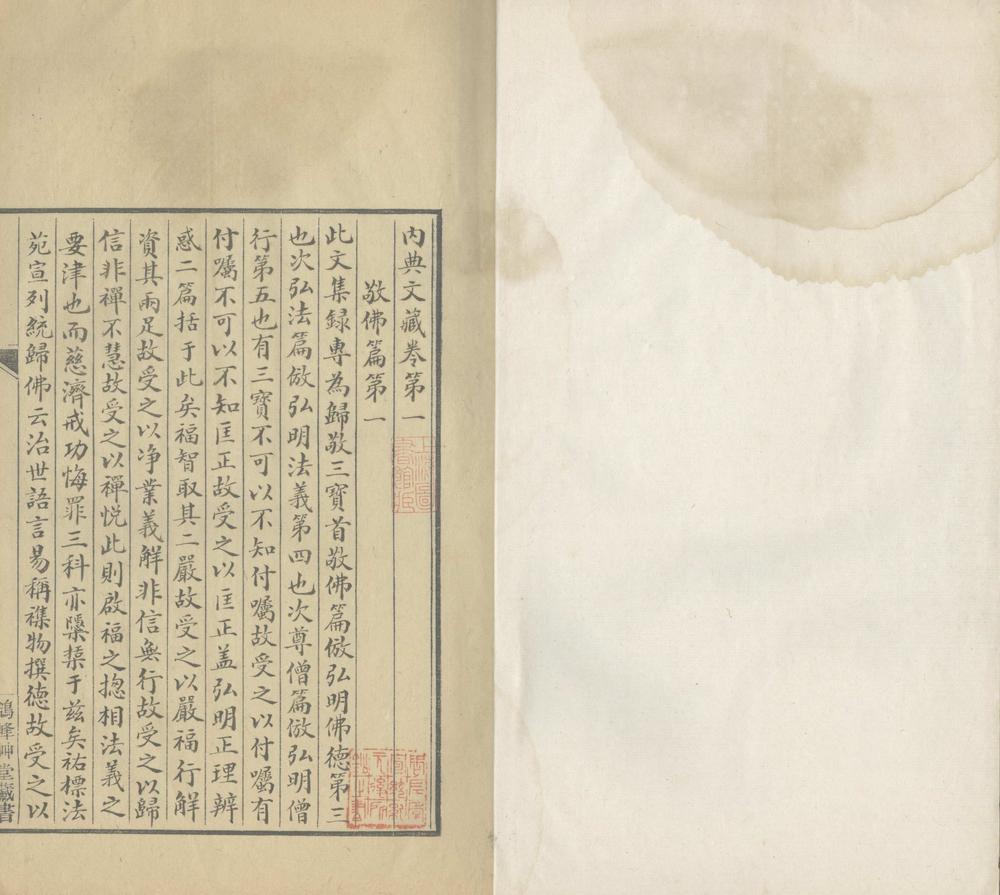 內典文藏卷第一
敬佛篇第一
此文集録專為歸敬三寶首敬佛篇倣弘明佛徳第三
也次弘法篇倣弘明法義第四也次尊僧篇倣弘明僧
行第五也有三寶不可以不知付嘱故受之以付嘱有
付嘱不可以不知匡正故受之以匡正盖弘明正理辨
惑二篇括于此矣福智取其二嚴故受之以嚴福行解
資其兩足故受之以净業義解非信無行故受之以歸
信非禪不慧故受之以禪悦此則啟福之揔相法義之
要津也而慈濟戒功悔罪三科亦櫽栝于兹矣祐標法
苑宣列統歸佛云治世語言易稱襍物撰徳故受之以
峰艸堂藏書